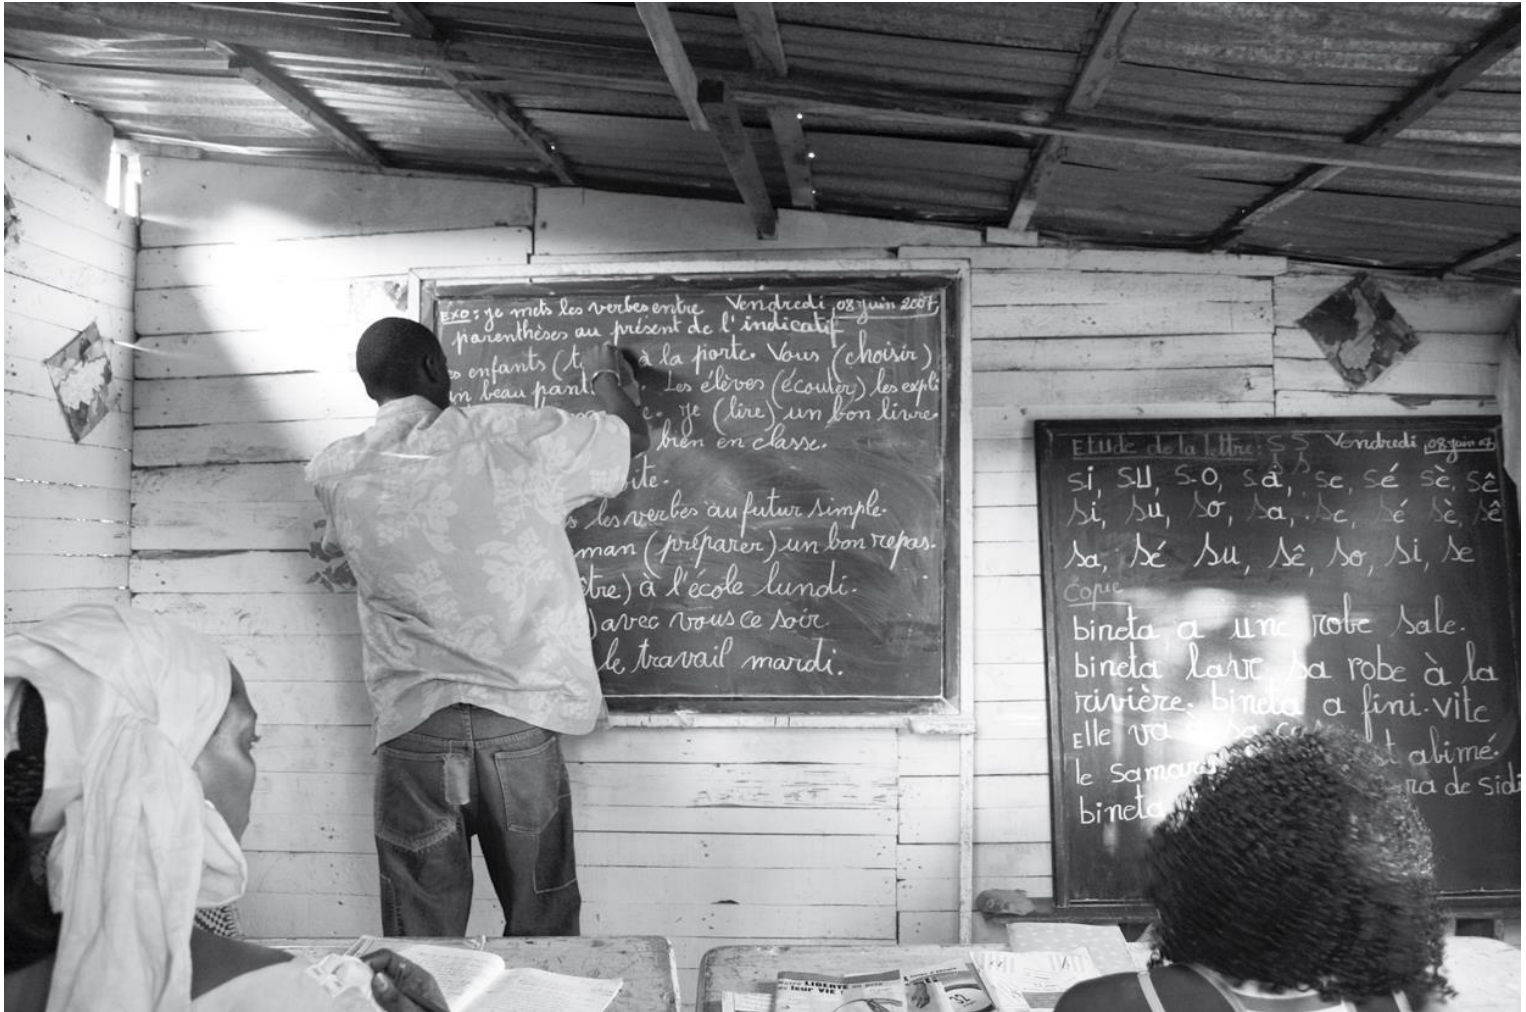 Exo: je mets les verbes entre Vendredi, 08 juin 2007,
parenthèses au présent de l'indicatif
enfants (t à la porte. Vous (choisir)
un beau pant Les élèves (écouter) les expli
je (lire) un bon livre.
bien en classe.
ite.
les verbes au futur simple.
man (préparer) un bon repas.
tre) à l'école lundi.
) avec vous ce soir.
le travail mardi.
Etude de la lettre: S s Vendredi, 08 juin 07
si, su, so, sa, se, sé sè, sê
si, su, so, sa, se, sé sè, sê
sa, sé su, sê, so, si, se
Copie
bineta a une robe sale.
bineta lave sa robe à la
rivière. bineta a fini. vite
Elle va à sa ca st abimé.
le Samar ra de Sidi
bineta
LIBERTE
leur VIE !
32